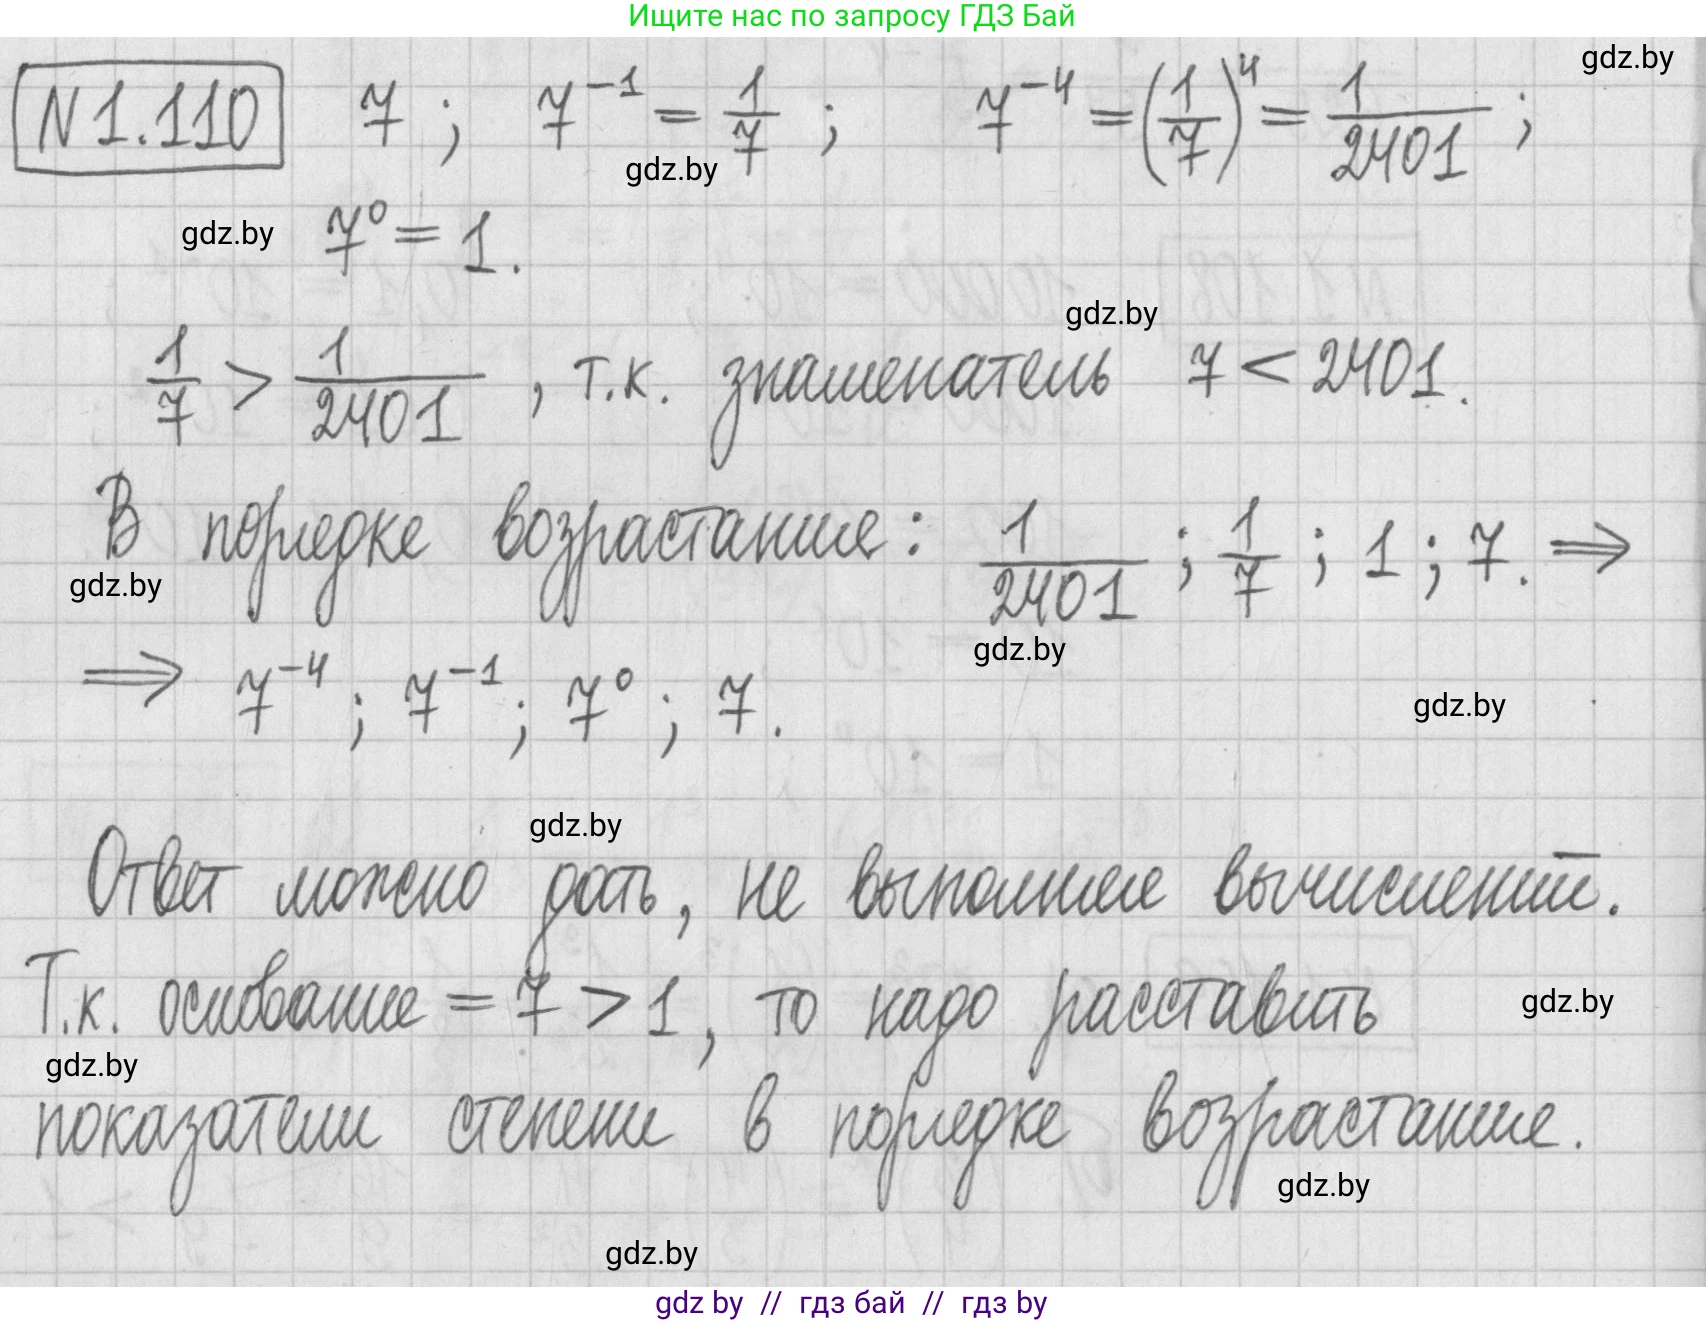 Ищите нас по запросу ГДЗ Бай
gdz.by
N 1.110 7 ; 7⁻¹ = 1/7 ; 7⁻⁴ = (1/7)⁴ = 1/2401 ;
gdz.by
gdz.by 7⁰ = 1.
gdz.by
1/7 > 1/2401 , т.к. знаменатель 7 < 2401.
В порядке возрастания: 1/2401 ; 1/7 ; 1 ; 7. ⇒
gdz.by
gdz.by
⇒ 7⁻⁴ ; 7⁻¹ ; 7⁰ ; 7.
gdz.by
gdz.by
Ответ можно дать, не выполняя вычислений.
Т.к. основание = 7 > 1, то надо расставить
gdz.by
gdz.by
показатели степени в порядке возрастания.
gdz.by
gdz.by
gdz by // гдз бай // гдз by